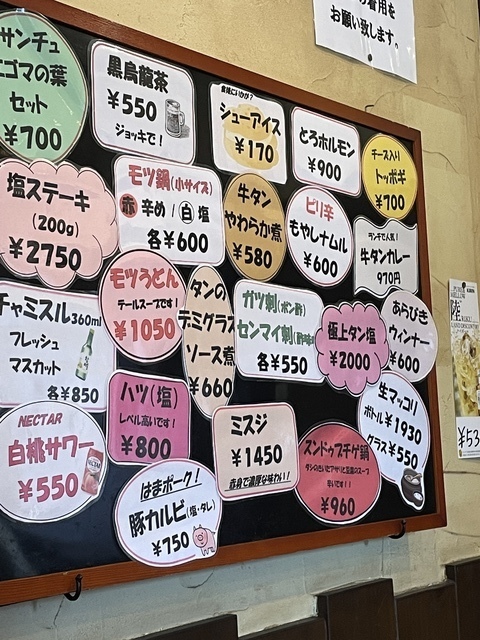 の着用を
お願い致します。
サンチュ
エゴマの葉
セット
¥700
黒烏龍茶
¥550
ジョッキで!
食後にいかが?
シューアイス
¥170
とろホルモン
¥900
チーズ入り
トッポギ
¥700
塩ステーキ
(200g)
¥2750
モツ鍋(小サイズ)
赤 辛め / 白 塩
各¥600
牛タン
やわらか煮
¥580
ピリ辛
もやしナムル
¥600
ランチで人気!
牛タンカレー
970円
チャミスル360ml
フレッシュ
マスカット
各¥850
モツうどん
テールスープです!
¥1050
タンの
デミグラス
ソース煮
¥660
ガツ刺(ポン酢)
センマイ刺(酢味噌)
各¥550
極上タン塩
¥2000
あらびき
ウィンナー
¥600
NECTAR
白桃サワー
¥550
ハツ(塩)
レベル高いです!
¥800
ミスジ
¥1450
赤身で濃厚な味わい!
スンドゥブチゲ鍋
¥960
生マッコリ
ボトル¥1930
グラス¥550
はまポーク!
豚カルビ(塩・タレ)
¥750
¥53